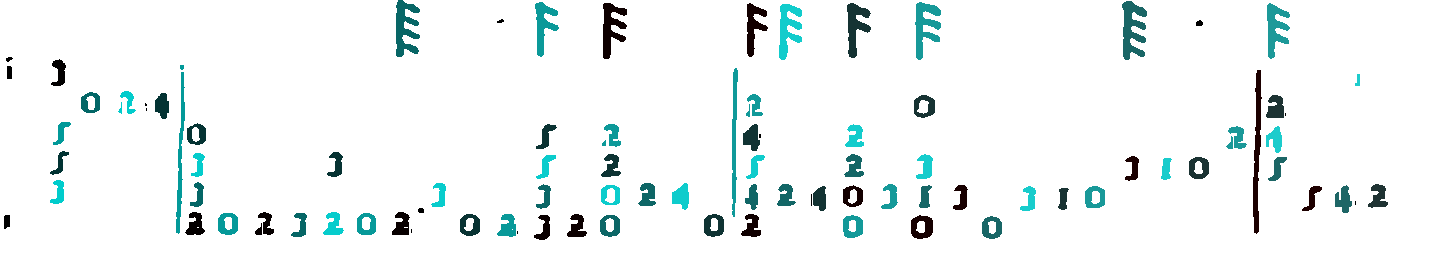 3
0 2 4 2 0 2
5 0 5 2 4 2 2 4
5 3 3 5 2 5 2 3 3 1 0 5
3 3 3 3 0 2 4 4 2 4 0 3 1 3 3 1 0 5 4 2
2 0 2 3 2 0 2 . 0 2 3 2 0 0 2 0 0 0